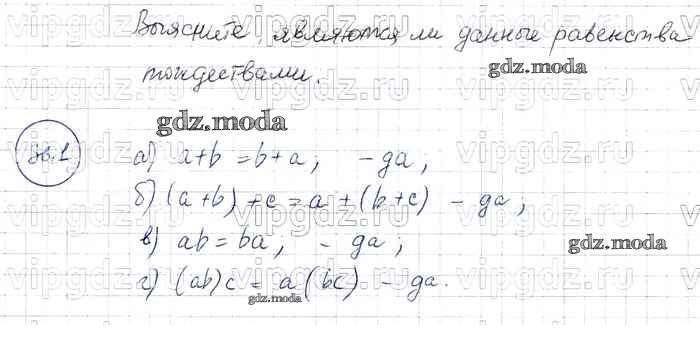 Выясните, являются ли данные равенства
тождествами.
gdz.moda
gdz.moda
36.1 а) a+b = b+a; - да;
б) (a+b)+c = a+(b+c) - да;
в) ab = ba; - да;
gdz.moda
г) (ab)c = a(bc) - да.
gdz.moda
vipgdz.ru